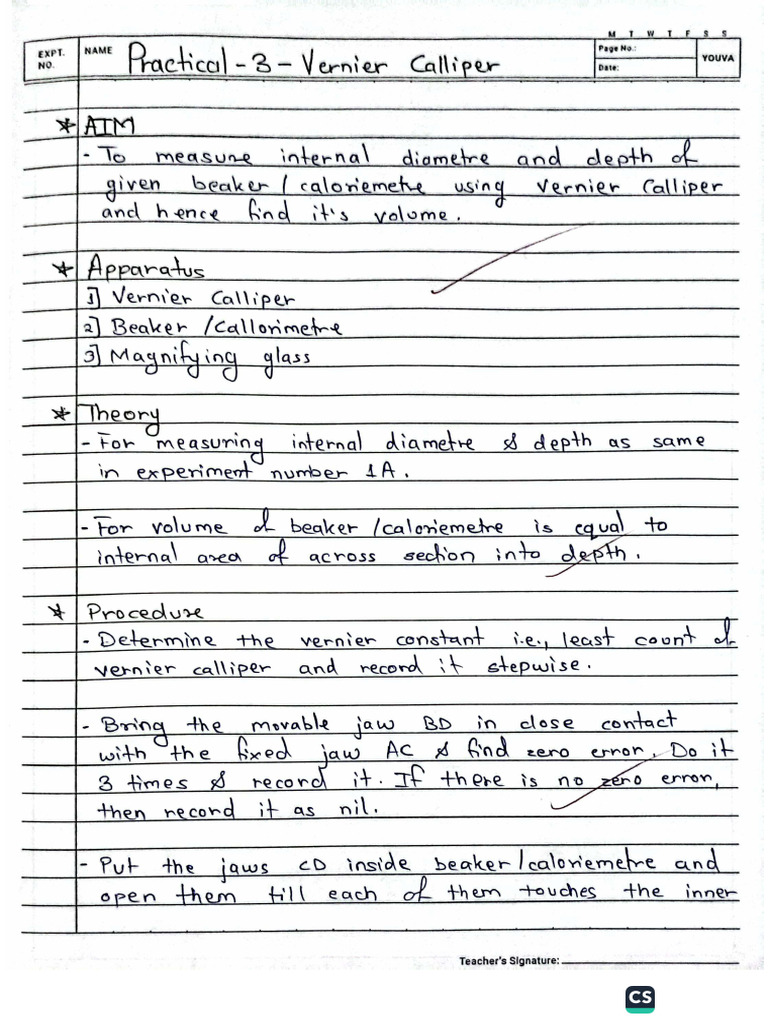 M T W T F S S
EXPT. NO.
NAME
Practical - 3 - Vernier Calliper
Page No.:
Date:
YOUVA
* AIM
- To measure internal diametre and depth of
given beaker / caloriemetre using Vernier Calliper
and hence find it's volume.
* Apparatus
1] Vernier Calliper
2] Beaker / Callorimetre
3] Magnifying glass
* Theory
- For measuring internal diametre & depth as same
in experiment number 1A.
- For volume of beaker / caloriemetre is equal to
internal area of across section into depth.
* Procedure
- Determine the vernier constant i.e., least count of
vernier calliper and record it stepwise.
- Bring the movable jaw BD in close contact
with the fixed jaw AC & find zero error. Do it
3 times & record it. If there is no zero error,
then record it as nil.
- Put the jaws CD inside beaker/caloriemetre and
open them till each of them touches the inner
Teacher's Signature:
CS